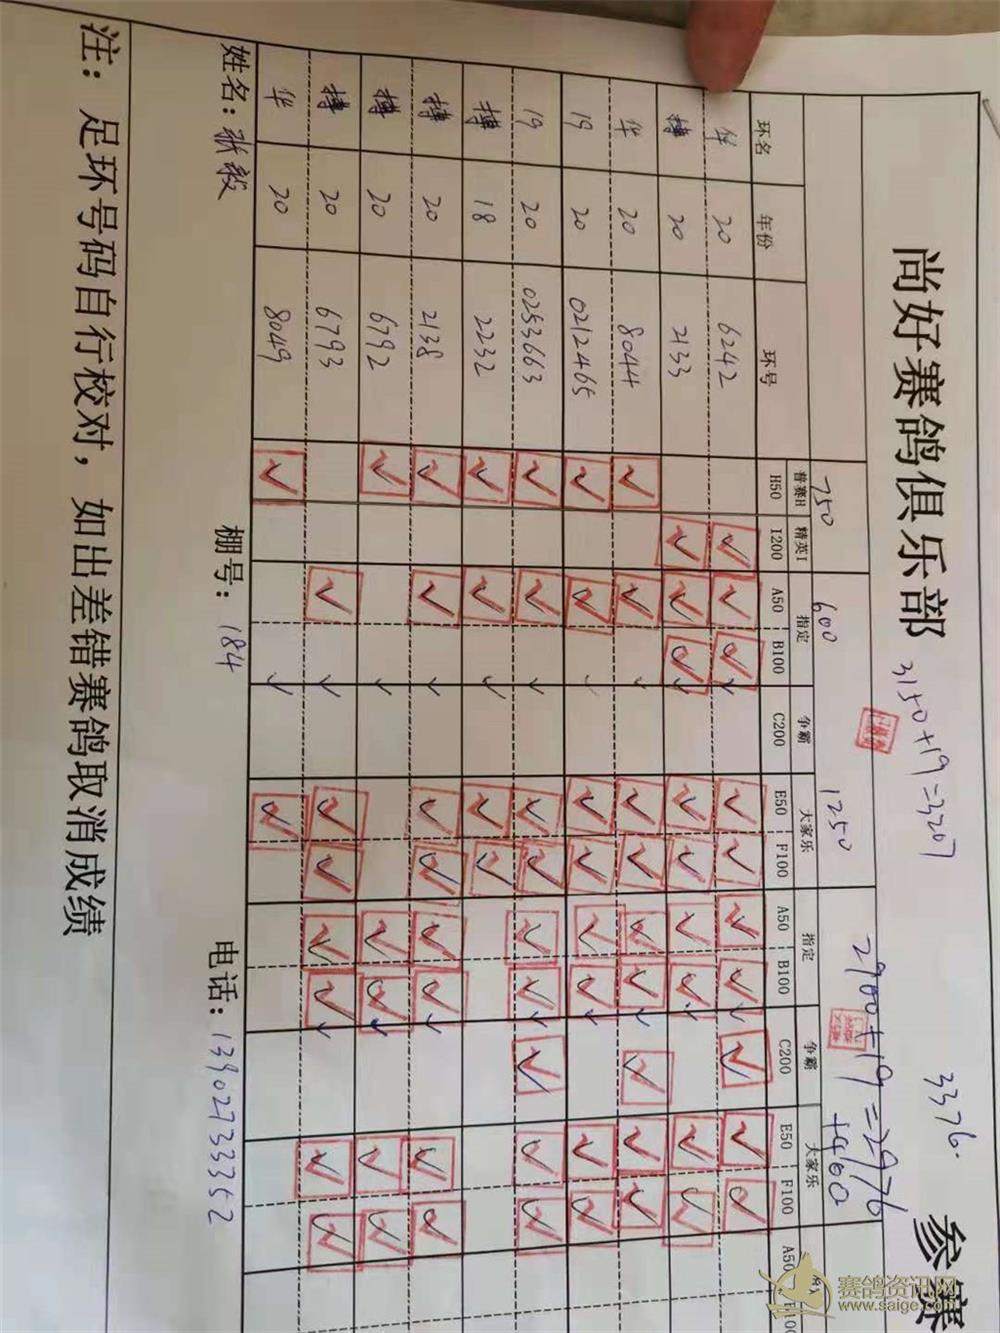 尚好赛鸽俱乐部 参赛
3150+19=3207
3376.
2900+19=2976
+400
750 600 1250
普赛H 精英I 指定 争霸 大家乐 指定 争霸 大家乐
环名 年份 环号 H50 I200 A50 B100 C200 E50 F100 A50 B100 C200 E50 F100 A50
华 20 6242 ✓ ✓ ✓ ✓ ✓ ✓ ✓ ✓ ✓ ✓
博 20 2133 ✓ ✓ ✓ ✓ ✓ ✓ ✓ ✓ ✓
华 20 8044 ✓ ✓ ✓ ✓ ✓ ✓ ✓ ✓ ✓
19 20 0212465 ✓ ✓ ✓ ✓ ✓ ✓ ✓ ✓
19 20 0253663 ✓ ✓ ✓ ✓ ✓ ✓ ✓ ✓ ✓
博 18 2232 ✓ ✓ ✓ ✓
博 20 2138 ✓ ✓ ✓ ✓ ✓ ✓ ✓ ✓
博 20 6792 ✓ ✓ ✓ ✓ ✓
博 20 6793 ✓ ✓ ✓ ✓ ✓ ✓ ✓
华 20 8049 ✓ ✓
姓名：张毅 棚号：184 电话：13902733352
注：足环号码自行校对，如出差错赛鸽取消成绩
赛鸽资讯网
www.saige.com